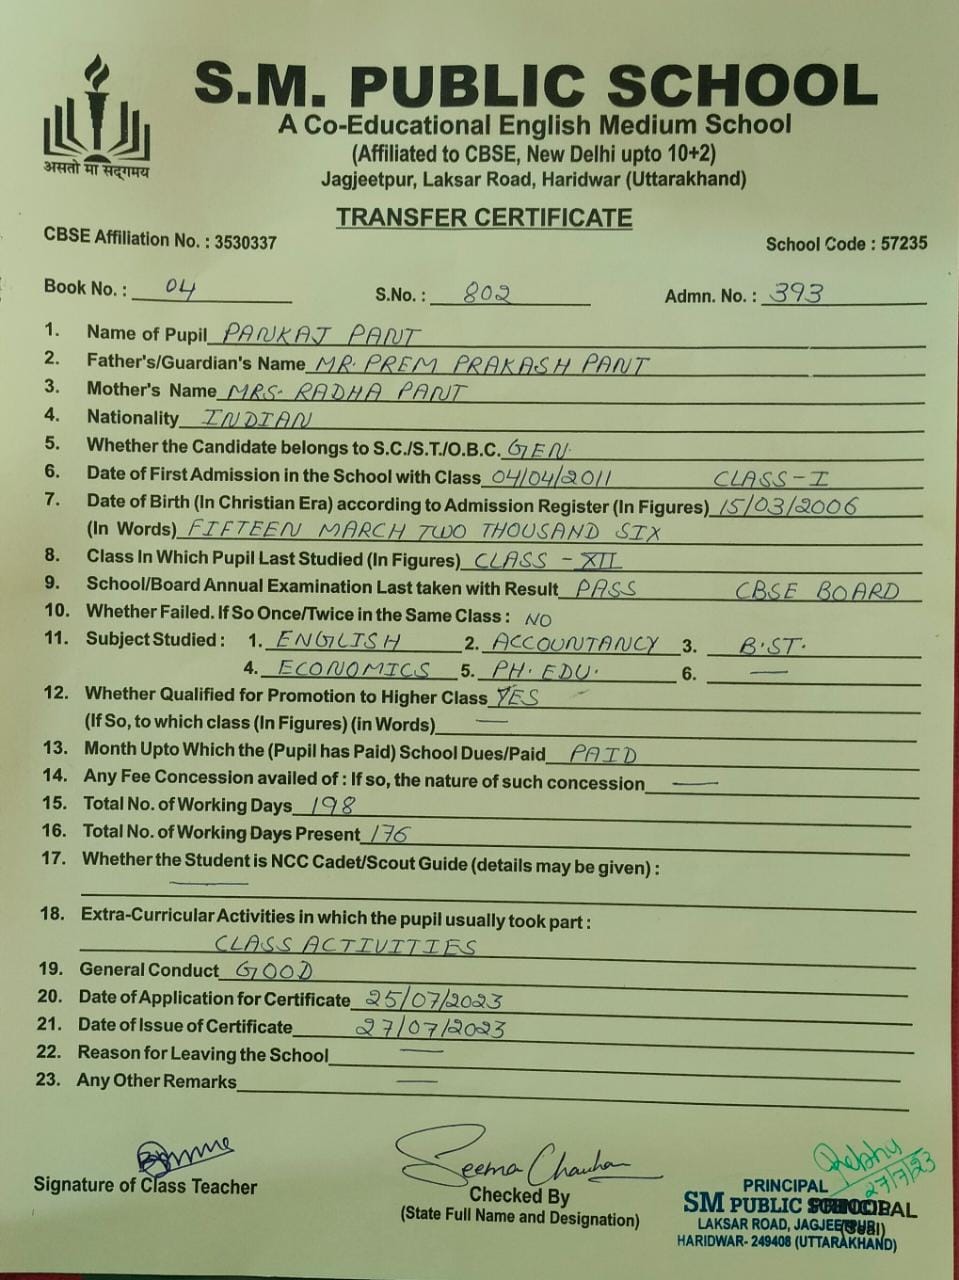 S.M. PUBLIC SCHOOL
A Co-Educational English Medium School
(Affiliated to CBSE, New Delhi upto 10+2)
Jagjeetpur, Laksar Road, Haridwar (Uttarakhand)
असतो मा सद्गमय
TRANSFER CERTIFICATE
CBSE Affiliation No. : 3530337 School Code : 57235
Book No. : 04 S.No. : 802 Admn. No. : 393
1. Name of Pupil PANKAJ PANT
2. Father's/Guardian's Name MR. PREM PRAKASH PANT
3. Mother's Name MRS. RADHA PANT
4. Nationality INDIAN
5. Whether the Candidate belongs to S.C./S.T./O.B.C. GEN.
6. Date of First Admission in the School with Class 04/04/2011 CLASS-I
7. Date of Birth (In Christian Era) according to Admission Register (In Figures) 15/03/2006
(In Words) FIFTEEN MARCH TWO THOUSAND SIX
8. Class In Which Pupil Last Studied (In Figures) CLASS - XII
9. School/Board Annual Examination Last taken with Result PASS CBSE BOARD
10. Whether Failed. If So Once/Twice in the Same Class : NO
11. Subject Studied : 1. ENGLISH 2. ACCOUNTANCY 3. B.ST.
4. ECONOMICS 5. PH. EDU. 6. —
12. Whether Qualified for Promotion to Higher Class YES
(If So, to which class (In Figures) (in Words) —
13. Month Upto Which the (Pupil has Paid) School Dues/Paid PAID
14. Any Fee Concession availed of : If so, the nature of such concession —
15. Total No. of Working Days 198
16. Total No. of Working Days Present 176
17. Whether the Student is NCC Cadet/Scout Guide (details may be given) :
—
18. Extra-Curricular Activities in which the pupil usually took part :
CLASS ACTIVITIES
19. General Conduct GOOD
20. Date of Application for Certificate 25/07/2023
21. Date of Issue of Certificate 27/07/2023
22. Reason for Leaving the School —
23. Any Other Remarks —
Seema Chauhan
27/7/23
Signature of Class Teacher
Checked By
(State Full Name and Designation)
PRINCIPAL
SM PUBLIC SCHOOL
PRINCIPAL
(Seal)
LAKSAR ROAD, JAGJEETPUR
HARIDWAR- 249408 (UTTARAKHAND)